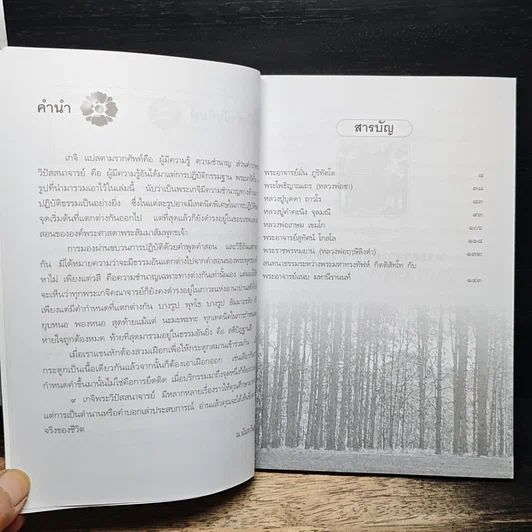 คำนำ
เกจิ แปลตามรากศัพท์คือ ผู้มีความรู้ ความชำนาญ ส่วนคำว่าพระ
วิปัสสนาจารย์ คือ ผู้มีความรู้อันได้มาแต่การปฏิบัติกรรมฐาน พระเกจิทั้ง
รูปที่นำมารวมเอาไว้ในเล่มนี้ นับว่าเป็นพระเกจิมีความชำนาญทางด้าน
ปฏิบัติธรรมเป็นอย่างยิ่ง ซึ่งในแต่ละรูปอาจมีเทคนิควิเศษในการปฏิบัติ
จุดเริ่มต้นที่แตกต่างกันออกไป แต่ที่สุดแล้วก็ยังดำรงอยู่ในขอบเขตแห่ง
สอนขององค์พระศาสดาพระสัมมาสัมพุทธเจ้า
การมองผ่านขบวนการปฏิบัติด้วยคำพูดคำสอน และวิธีอัน
กัน มิได้หมายความว่าจะมีธรรมอันแตกต่างไปจากคำสอนของพระพุทธ
หาไม่ เพียงแต่วลี คือความชำนาญเฉพาะทางต่างกันเท่านั้นเอง
จะเห็นว่าทุกพระเกจิคณาจารย์ก็ยังคงดำรงอยู่ในภาวะแห่งอานาปาน
เพียงแต่มีคำกำหนดที่แตกต่างกัน บางรูป พุทโธ บางรูป สัมมาอรหัง
ยุบหนอ พองหนอ สุดท้ายแม้แต่ นะมะพะทะ ทุกเทคนิคในการกำหนด
หายใจถูกต้องหมด ท้ายที่สุดมารวมอยู่ในธรรมอันยิ่ง คือ สติปัฏฐาน
เมื่อเราแขนหักต้องสวมเฝือกเพื่อให้กระดูกสมานเข้าร่วมกัน
กระดูกเป็นเนื้อเดียวกันแล้วจากนั้นก็ต้องเอาเฝือกออก เช่นเดียวกับ
กำหนดคำขึ้นมานั้นไม่ใช่คือการยึดติด เมื่อบริกรรมมาถึงจุดหนึ่งก็ต้อง
๙ เกจิพระวิปัสสนาจารย์ มีหลากหลายเรื่องราวให้คุณศึกษา
แต่การเป็นตำนานหรือคำบอกเล่าประสบการณ์ อ่านแล้วคุณจะได้
จริงของชีวิต
สารบัญ
พระอาจารย์มั่น ภูริทัตโต ๘
พระโพธิญาณเถร (หลวงพ่อชา) ๓๘
หลวงปู่บุดดา ถาวโร ๘๓
หลวงปู่คำคะนิง จุลมณี ๙๓
หลวงพ่อเกษม เขมโก ๑๐๖
พระอาจารย์สุทัศน์ โกสโล ๑๑๔
พระราชพรหมยาน (หลวงพ่อฤาษีลิงดำ) ๑๓๒
สนทนาธรรมระหว่างพระมหาทรงทัฬห์ กิตติสัทโท กับ
พระอาจารย์แนบ มหานีรานนท์ ๑๕๓